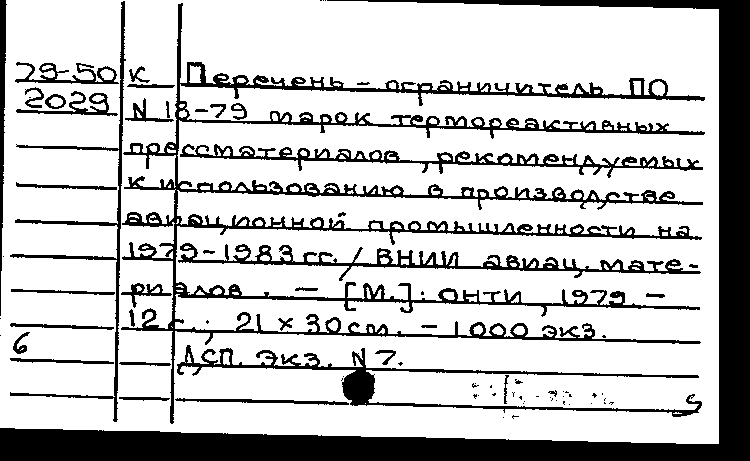 79-50 к Перечень - ограничитель ПО
2029 N 18-79 марок термореактивных
прессматериалов, рекомендуемых
к использованию в производстве
авиационной промышленности на
1979-1983 гг. / ВНИИ авиац. мате-
риалов. - [М.]: ОНТИ, 1979. -
12 с.; 21 x 30 см. - 1000 экз.
6 ДСП. Экз. N 7.